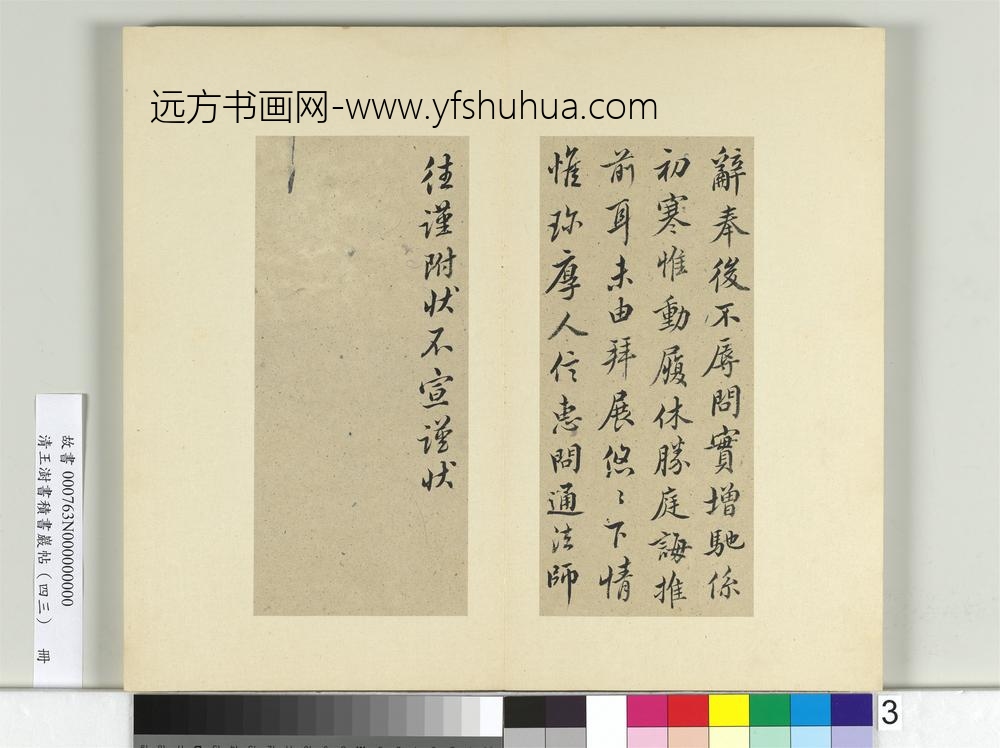 远方书画网-www.yfshuhua.com
辭奉後不辱問實增馳係
初寒惟動履休勝庭誨推
前耳未由拜展悠〻下情
惟珎厚人信惠問通法師
往謹附狀不宣謹狀
故書 000763N000000000
清王澍書積書巖帖（四三） 冊
3